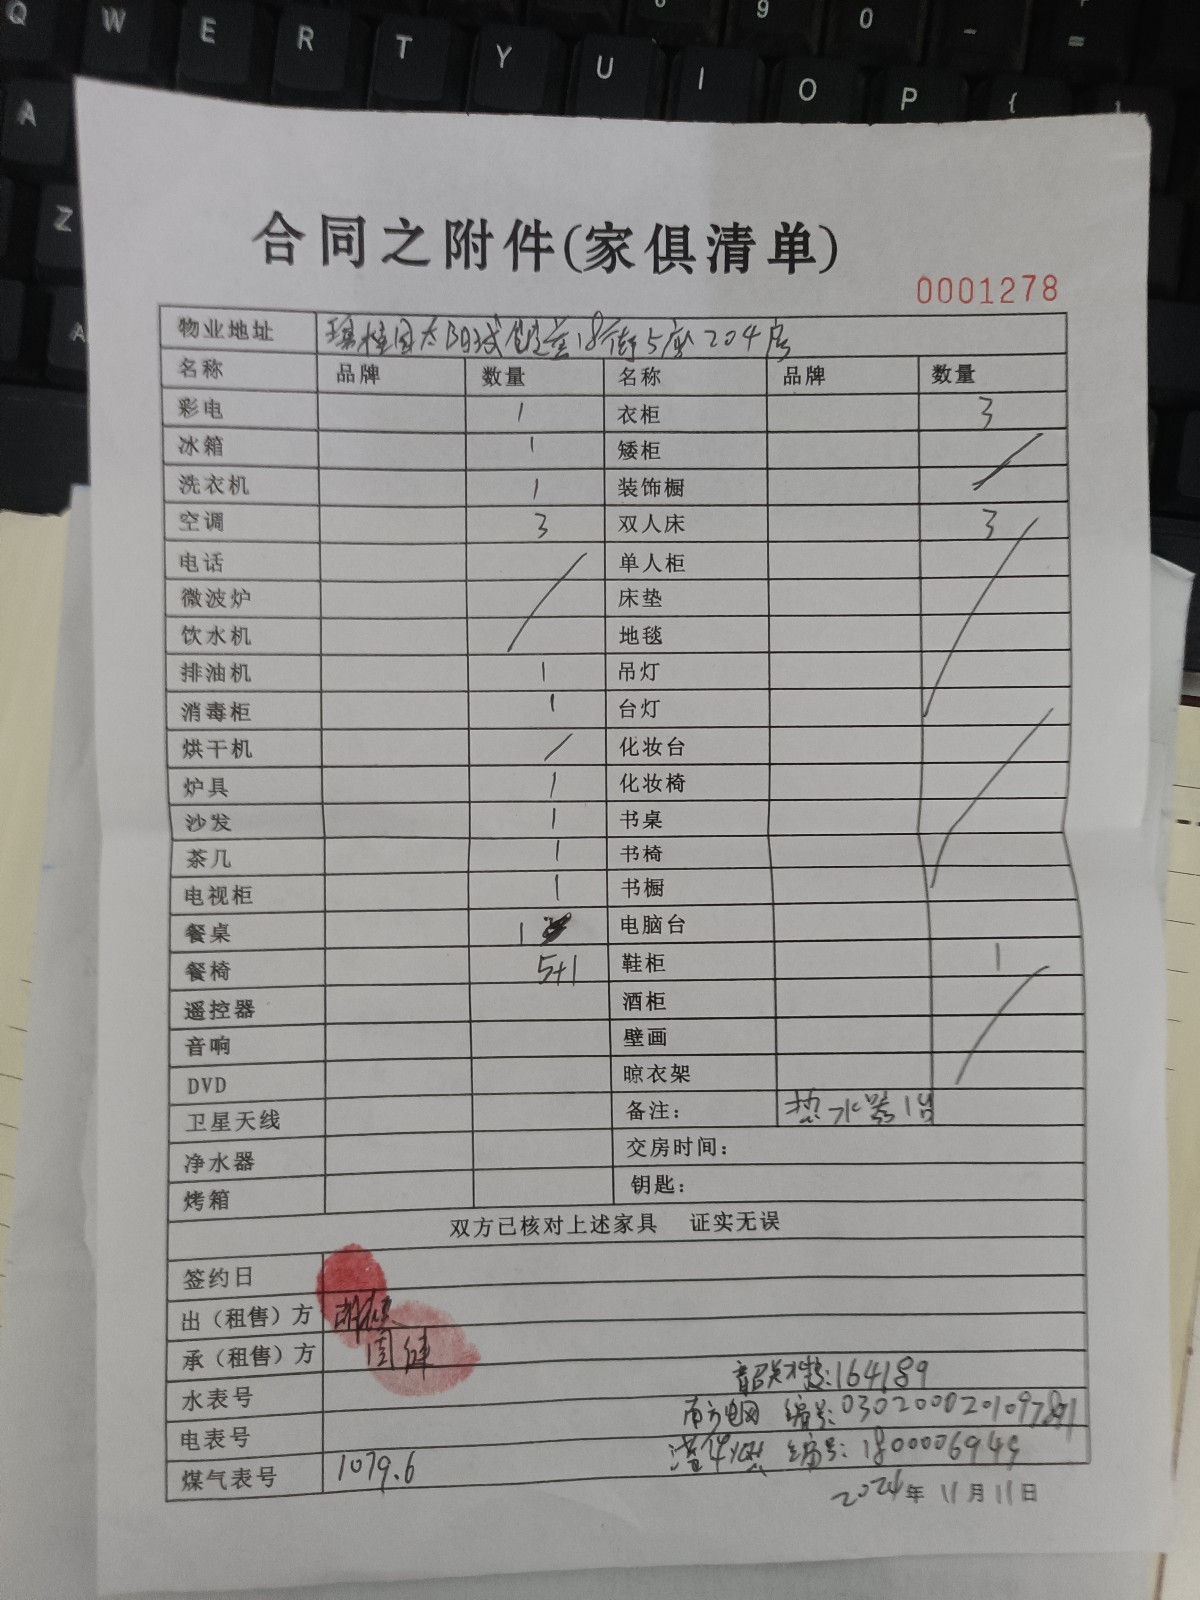 Q W E R T Y U I O P {
9 0 - =
A
Z
A
合同之附件(家俱清单)
0001278
物业地址 碧桂园太阳城 18街5座204房
名称 品牌 数量 名称 品牌 数量
彩电 1 衣柜 3
冰箱 1 矮柜
洗衣机 1 装饰橱
空调 3 双人床 3
电话 单人柜
微波炉 床垫
饮水机 地毯
排油机 1 吊灯
消毒柜 1 台灯
烘干机 化妆台
炉具 1 化妆椅
沙发 1 书桌
茶几 1 书椅
电视柜 1 书橱
餐桌 1 电脑台
餐椅 5+1 鞋柜 1
遥控器 酒柜
音响 壁画
DVD 晾衣架
卫星天线 备注: 热水器1台
净水器 交房时间:
烤箱 钥匙:
双方已核对上述家具 证实无误
签约日
出(租售)方
承(租售)方 周
水表号 :164189
电表号 南方电网 编号:
煤气表号 1079.6 编号:180000694
2024年11月11日